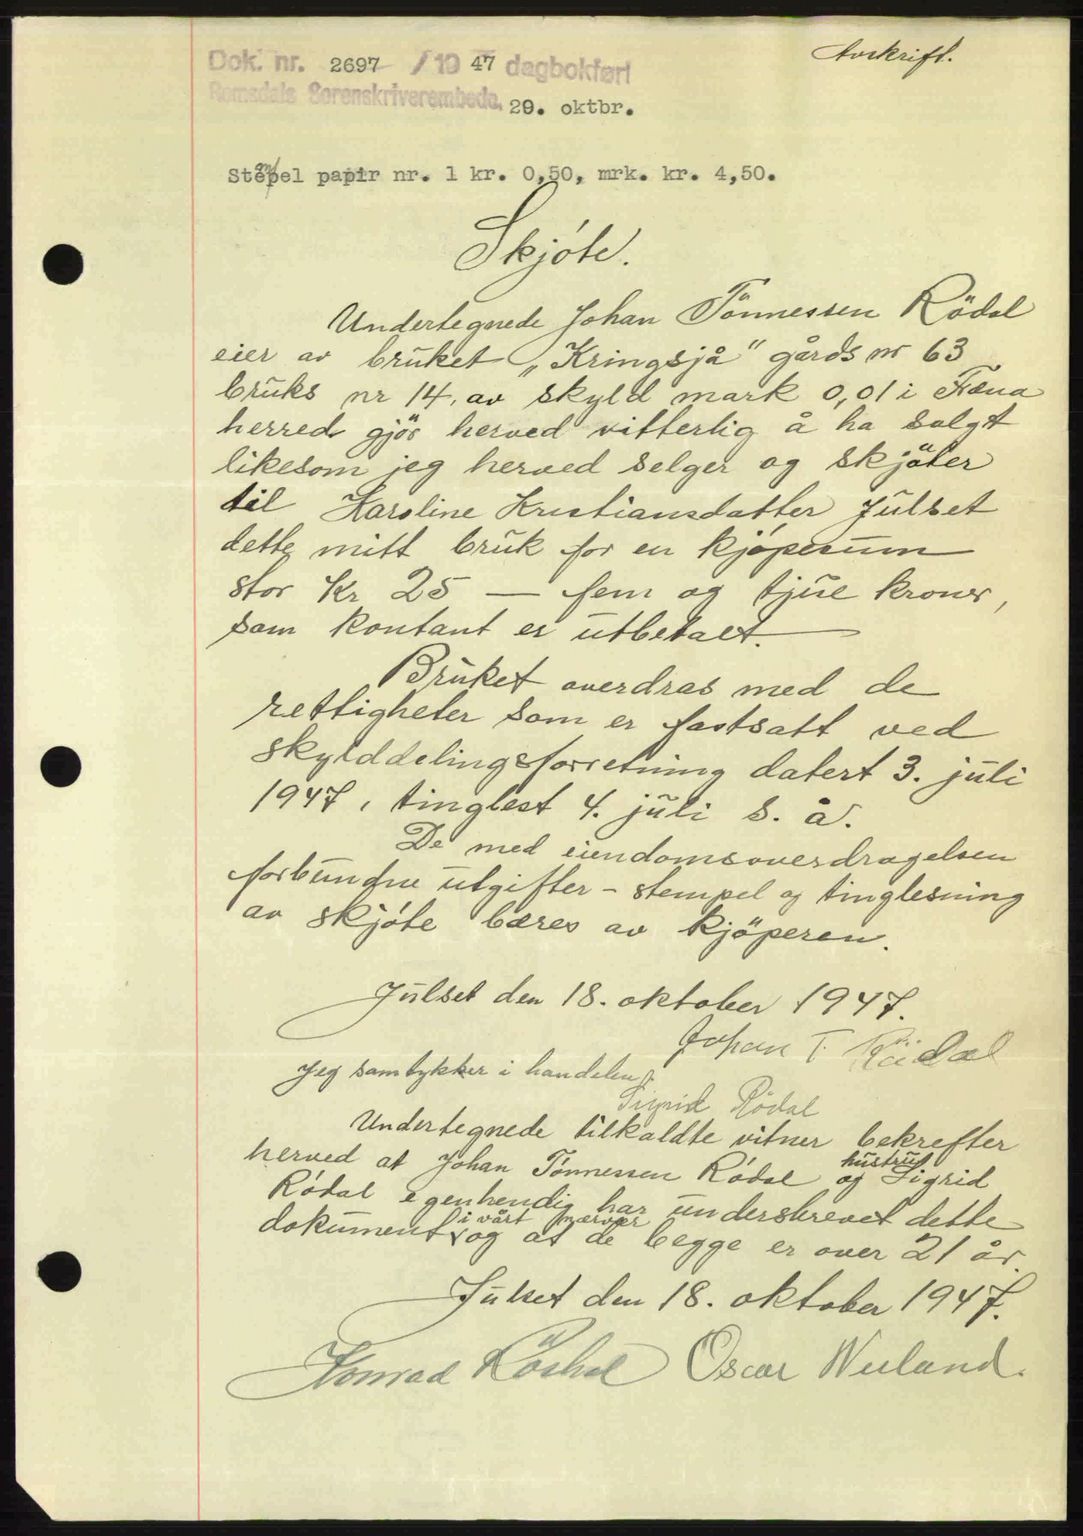 Avskrift.
Dok. nr. 2697 / 19 47 dagbokført
Romsdals Sorenskriverembede, 29. oktbr.
Stempel papir nr. 1 kr. 0,50, mrk. kr. 4,50.
Skjóte.
Undertegnede Johan Tönnessen Rödal
eier av bruket „Kringsjå" gårds nr 63
bruks nr 14, av skyld mark 0,01 i Fræna
herred gjör herved vitterlig å ha solgt
likesom jeg herved selger og skjöter
til Karoline Kristiansdatter Julset
dette mitt bruk for en kjópesum
stor Kr 25 — fem og tjue kroner,
som kontant er utbetalt.
Bruket overdras med de
rettigheter som er fastsatt ved
skylddelingsforretning datert 3. juli
1947, tinglest 4. juli s. å.
De med eiendomsoverdragelsen
forbundne utgifter - stempel og tinglesning
av skjóte bæres av kjöperen.
Julset den 18. oktober 1947.
Johan T. Rödal
Jeg samtykker i handelen
Sigrid Rödal
Undertegnede tilkaldte vitner bekrefter
herved at Johan Tónnessen Ródal og hustru Sigrid
Ródal egenhendig har underskrevet dette
dokument i vårt nærvær og at de begge er over 21 år.
Julset den 18. oktober 1947.
Konrad Röshol Oscar Weiland.